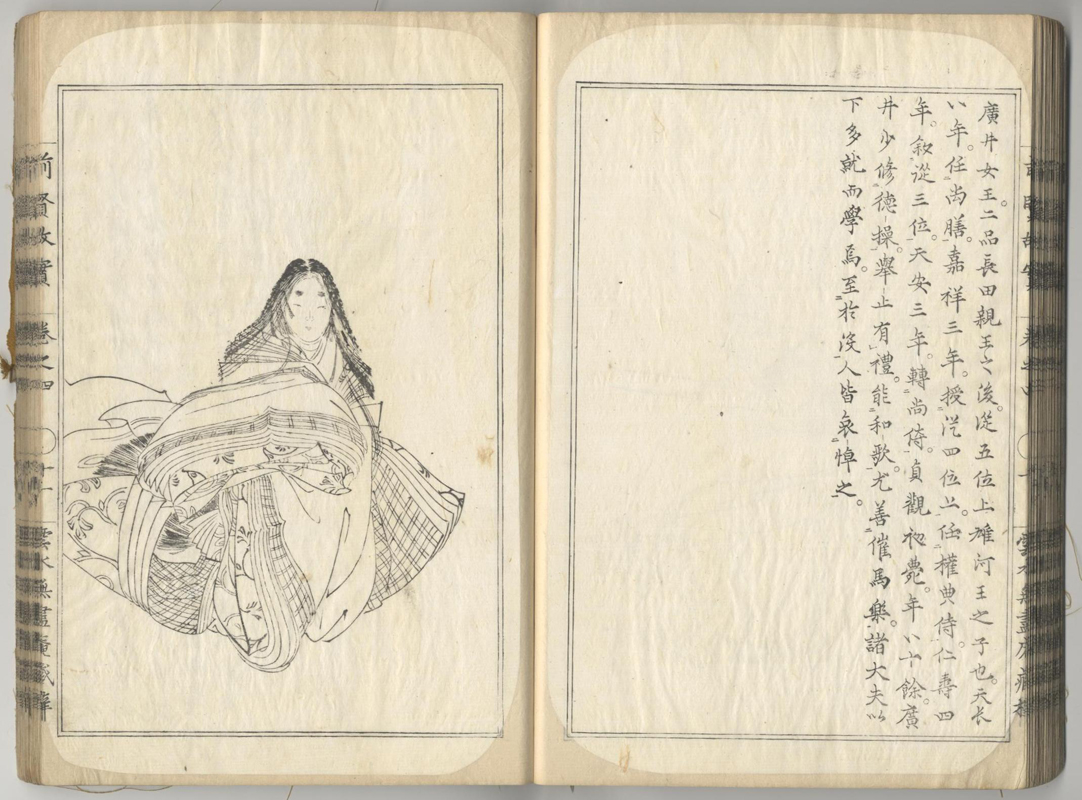 廣井女王。二品長田親王之後。從五位上雄河王之子也。天長
八年。任尚膳。嘉祥三年。授從四位上。任權典侍。仁壽四
年。敘從三位。天安三年。轉尚侍。貞觀初薨。年八十餘。廣
井少修德操。舉止有禮。能和歌。尤善催馬樂。諸大夫以
下多就而學焉。至於沒。人皆哀悼之。
前賢故實 卷之四 雲水無盡庵藏